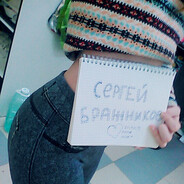 СЕРГЕЙ
БРАЖНИКОВ